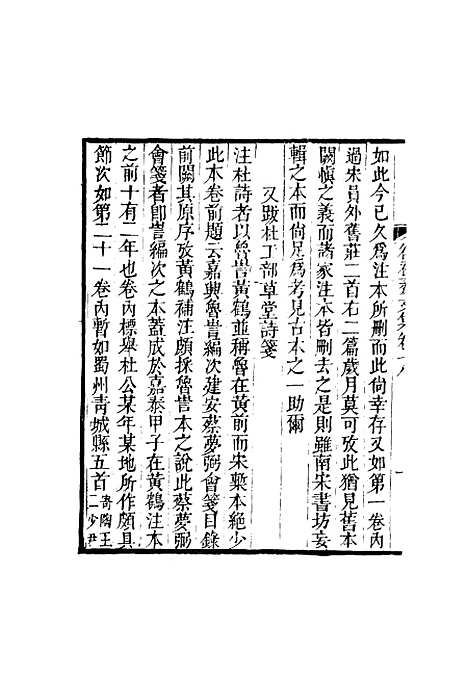 如此今已久爲注本所刪而此尙幸存又如第一卷內
過宋員外舊莊二首右二篇歲月莫可攷此猶見舊本
闕愼之義而諸家注本皆刪去之是則雖南宋書坊妄
輯之本而尙足爲考見古本之一助爾
又跋杜工部草堂詩箋
注杜詩者以魯訔黃鶴並稱魯在黃前而宋槧本絶少
此本卷前題云嘉興魯訔編次建安蔡夢弼會箋目錄
前闕其原序攷黃鶴補注頗採魯訔本之說此蔡夢弼
會箋者卽訔編次之本蓋成於嘉泰甲子在黃鶴注本
之前十有二年也卷內標舉杜公某年某地所作頗具
節次如第二十一卷內暫如蜀州靑城縣五首寄陶王二少尹